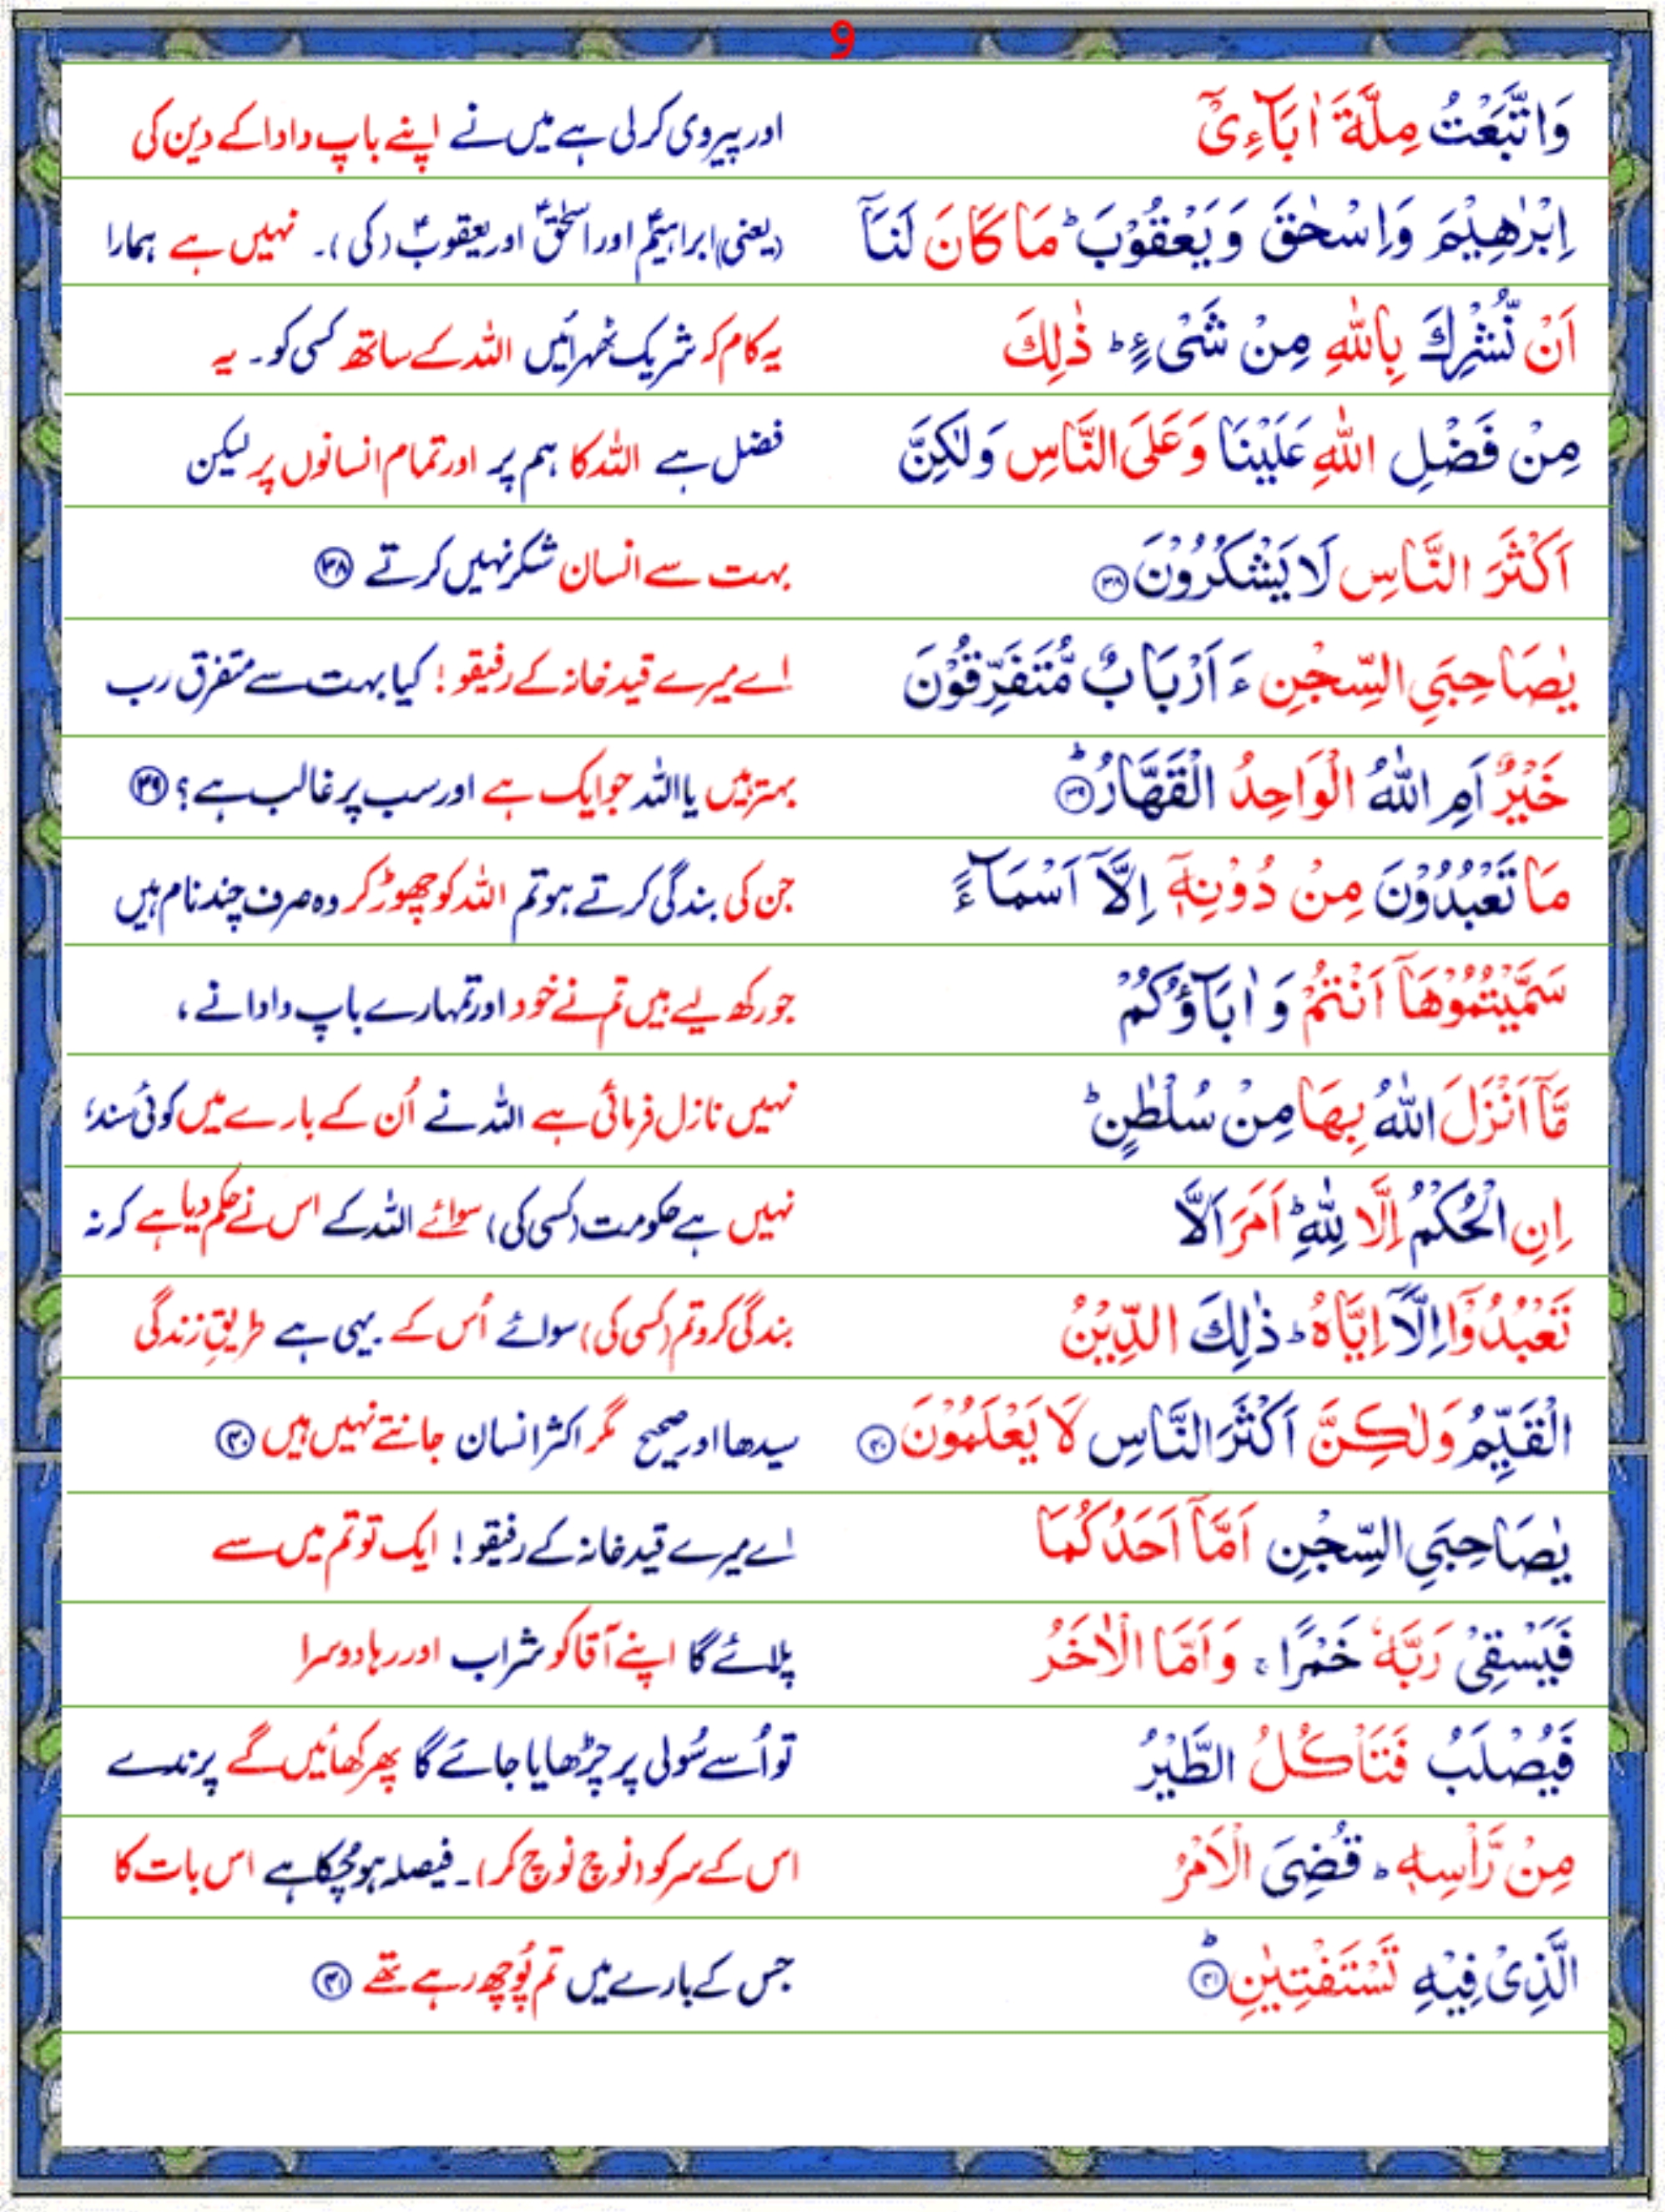 9
وَاتَّبَعْتُ مِلَّةَ اٰبَآءِیْۤ اور پیروی کرلی ہے میں نے اپنے باپ دادا کے دین کی
اِبْرٰهِیْمَ وَاِسْحٰقَ وَیَعْقُوْبَ ؕ مَا كَانَ لَنَاۤ (یعنی) ابراہیمؑ اور اسحٰقؑ اور یعقوبؑ (کی)۔ نہیں ہے ہمارا
اَنْ نُّشْرِكَ بِاللّٰهِ مِنْ شَیْءٍ ؕ ذٰلِكَ یہ کام کہ شریک ٹھہرائیں اللہ کے ساتھ کسی کو۔ یہ
مِنْ فَضْلِ اللّٰهِ عَلَیْنَا وَعَلَی النَّاسِ وَلٰكِنَّ فضل ہے اللہ کا ہم پر اور تمام انسانوں پر لیکن
اَكْثَرَ النَّاسِ لَا یَشْكُرُوْنَ ۳۸ بہت سے انسان شکر نہیں کرتے ۳۸
یٰصَاحِبَیِ السِّجْنِ ءَاَرْبَابٌ مُّتَفَرِّقُوْنَ اے میرے قید خانہ کے رفیقو! کیا بہت سے متفرق رب
خَیْرٌ اَمِ اللّٰهُ الْوَاحِدُ الْقَهَّارُ ؕ ۳۹ بہتر ہیں یا اللہ جو ایک ہے اور سب پر غالب ہے؟ ۳۹
مَا تَعْبُدُوْنَ مِنْ دُوْنِهٖۤ اِلَّاۤ اَسْمَآءً جن کی بندگی کرتے ہو تم اللہ کو چھوڑ کر وہ صرف چند نام ہیں
سَمَّیْتُمُوْهَاۤ اَنْتُمْ وَاٰبَآؤُكُمْ جو رکھ لیے ہیں تم نے خود اور تمہارے باپ دادا نے،
مَّاۤ اَنْزَلَ اللّٰهُ بِهَا مِنْ سُلْطٰنٍ ؕ نہیں نازل فرمائی ہے اللہ نے اُن کے بارے میں کوئی سند،
اِنِ الْحُكْمُ اِلَّا لِلّٰهِ ؕ اَمَرَ اَلَّا نہیں ہے حکومت (کسی کی) سوائے اللہ کے اس نے حکم دیا ہے کہ نہ
تَعْبُدُوْۤا اِلَّاۤ اِیَّاهُ ؕ ذٰلِكَ الدِّیْنُ بندگی کرو تم (کسی کی) سوائے اُس کے۔ یہی ہے طریقِ زندگی
الْقَیِّمُ وَلٰكِنَّ اَكْثَرَ النَّاسِ لَا یَعْلَمُوْنَ ۴۰ سیدھا اور صحیح مگر اکثر انسان جانتے نہیں ہیں ۴۰
یٰصَاحِبَیِ السِّجْنِ اَمَّاۤ اَحَدُكُمَا اے میرے قید خانہ کے رفیقو! ایک تو تم میں سے
فَیَسْقِیْ رَبَّهٗ خَمْرًا ۚ وَاَمَّا الْاٰخَرُ پلائے گا اپنے آقا کو شراب اور رہا دوسرا
فَیُصْلَبُ فَتَاْكُلُ الطَّیْرُ تو اُسے سُولی پر چڑھایا جائے گا پھر کھائیں گے پرندے
مِنْ رَّاْسِهٖ ؕ قُضِیَ الْاَمْرُ اس کے سر کو (نوچ نوچ کر)۔ فیصلہ ہو چُکا ہے اس بات کا
الَّذِیْ فِیْهِ تَسْتَفْتِیٰنِ ؕ ۴۱ جس کے بارے میں تم پُوچھ رہے تھے ۴۱